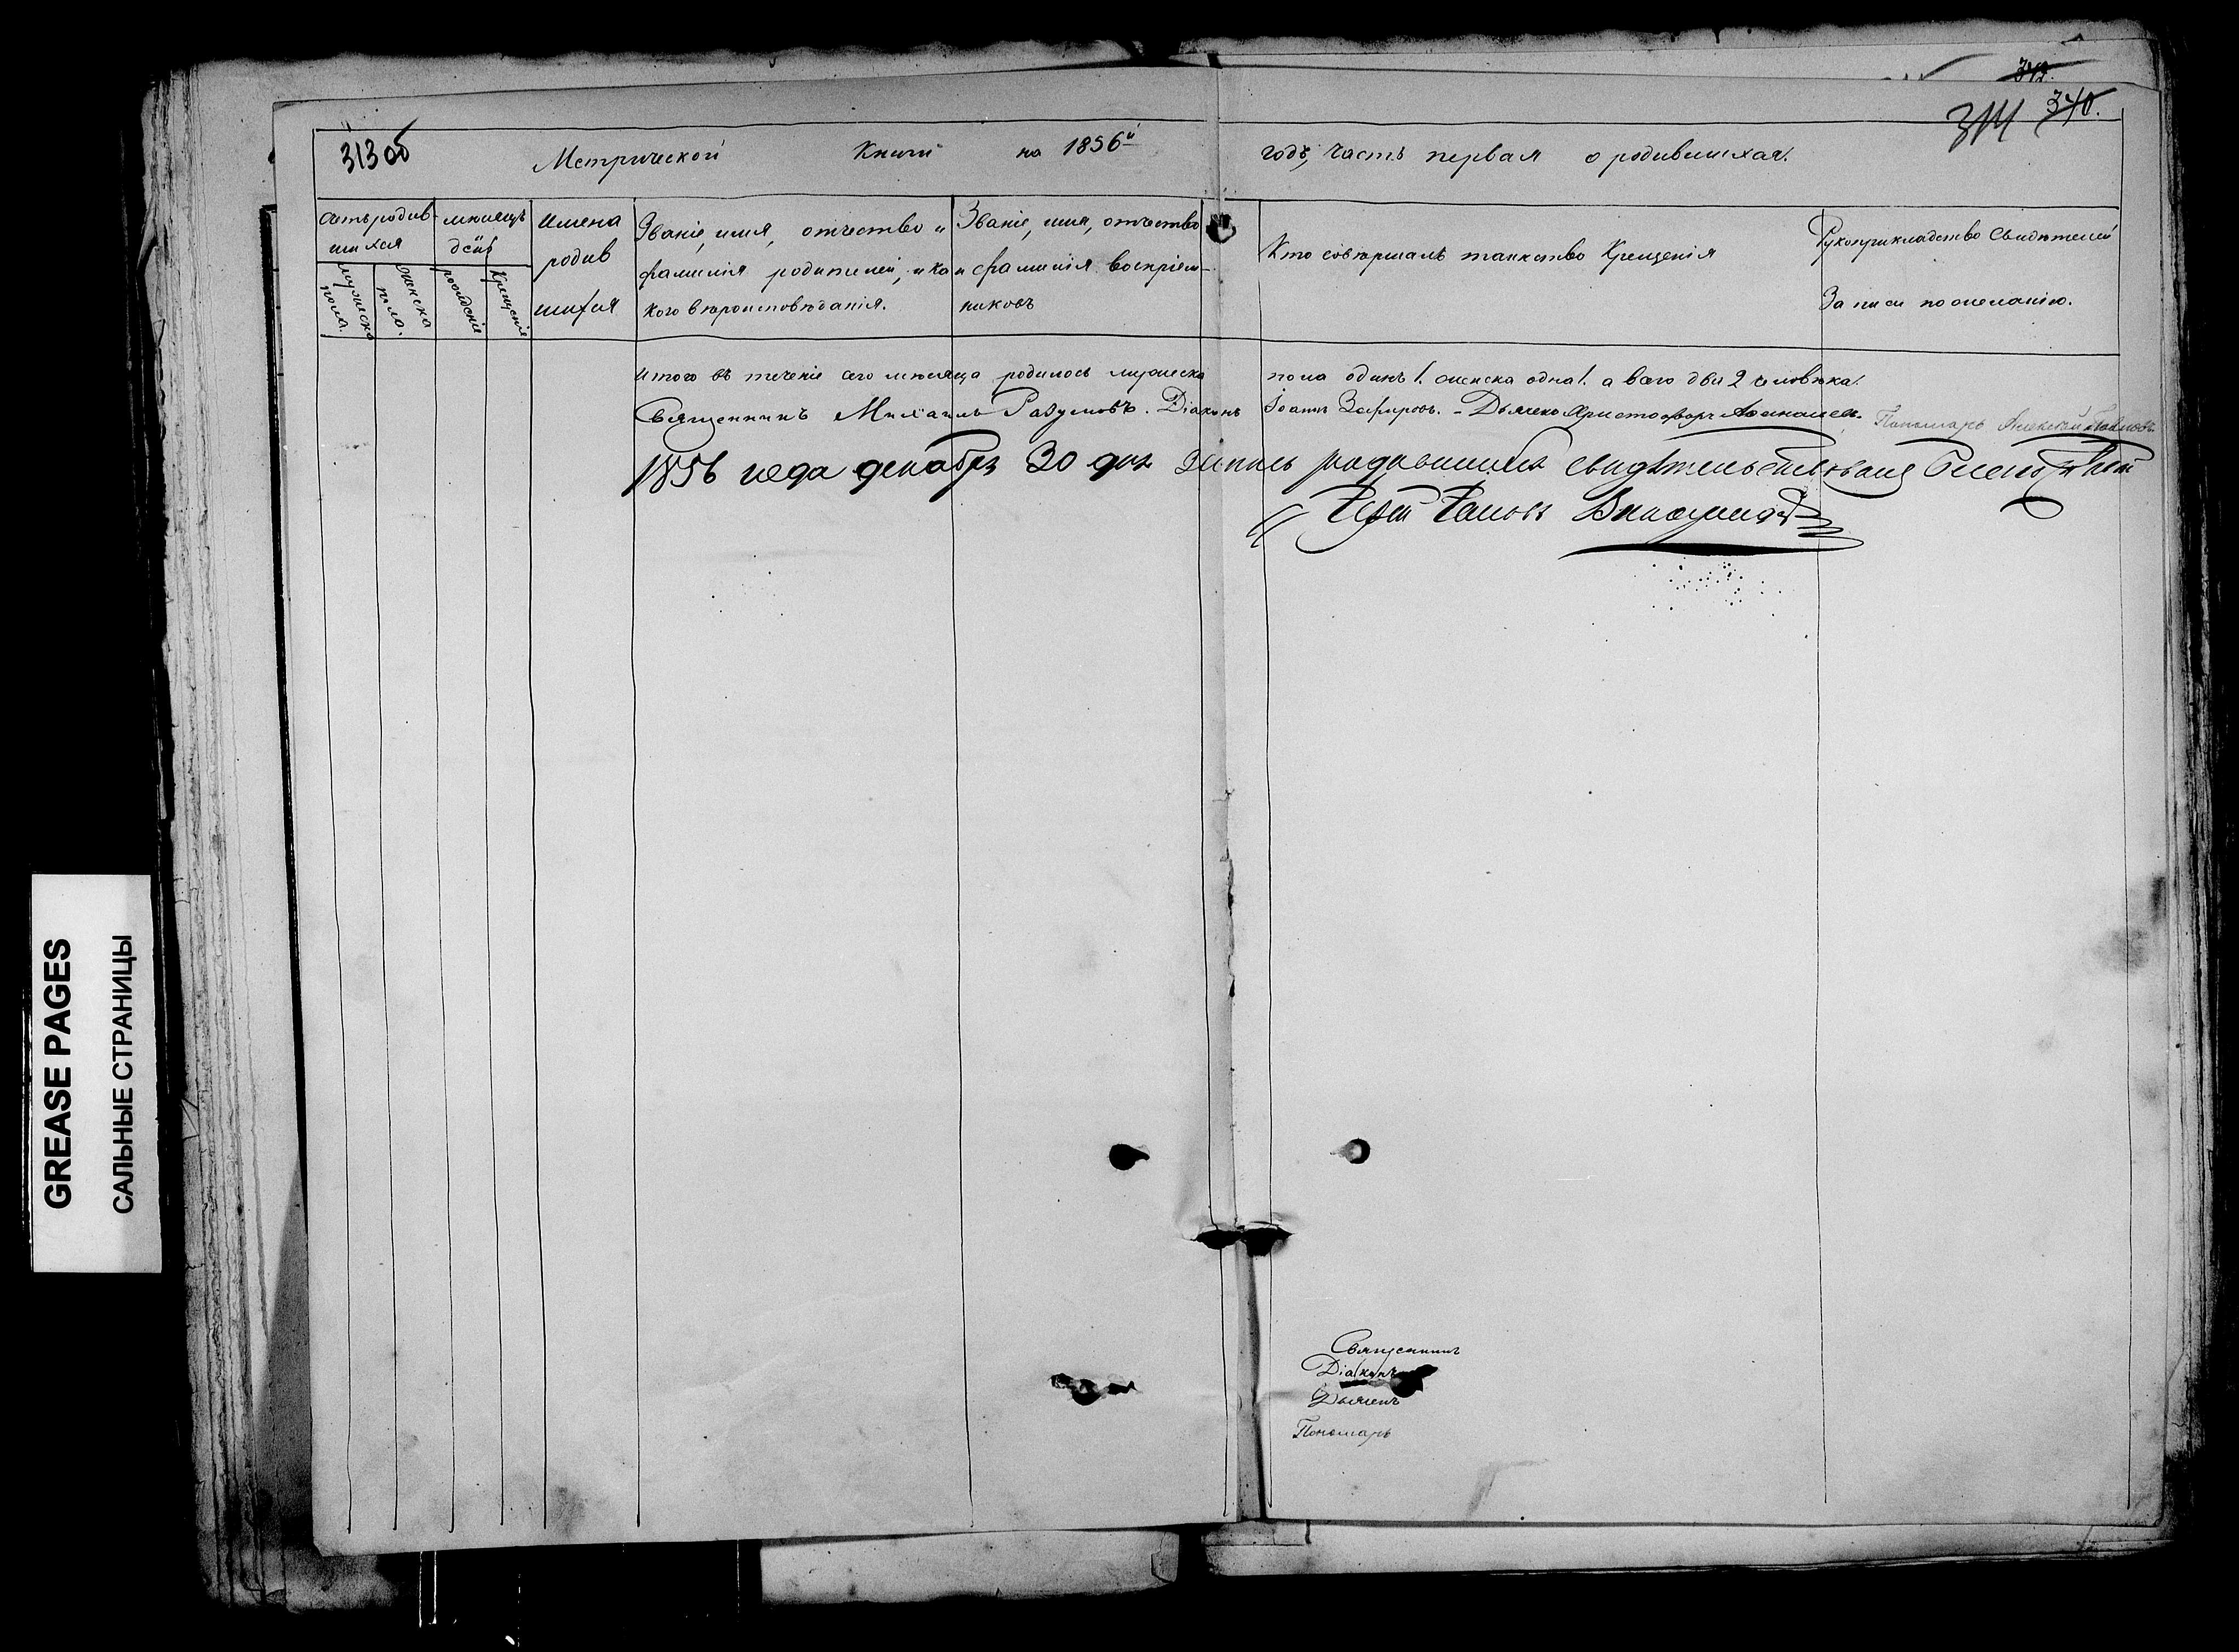 342.
340.
314
313 об
Метрической Книги на 1856й годъ, часть первая о родившихся.
Счетъ родив-
шихся
мужеска
пола.
женска
пола.
мѣсяцъ
рожденіе
Крещеніе
имена
родив
шихся
Званіе, имя, отчество и
фамилія родителей, и ка
кого вѣроисповѣданія.
Званіе, имя, отчество
и фамилія воспріем-
никовъ
Кто совершалъ таинство Крещенія
Рукоприкладство свидѣтелей
Записи по желанію.
итого въ теченіе сего мѣсяца родилось мужеска пола одинъ 1. женска одна 1. а всего два 2 человѣка.
Священникъ Михаилъ Разумовъ. Діаконъ Іоаннъ Зефировъ. - Дьячекъ Христофоръ Пономарь Алексей
1856 года декабря 30 дня запись родившихся свидѣтельствовалъ
Священникъ
Діаконъ
Дьячекъ
Пономарь
GREASE PAGES
САЛЬНЫЕ СТРАНИЦЫ